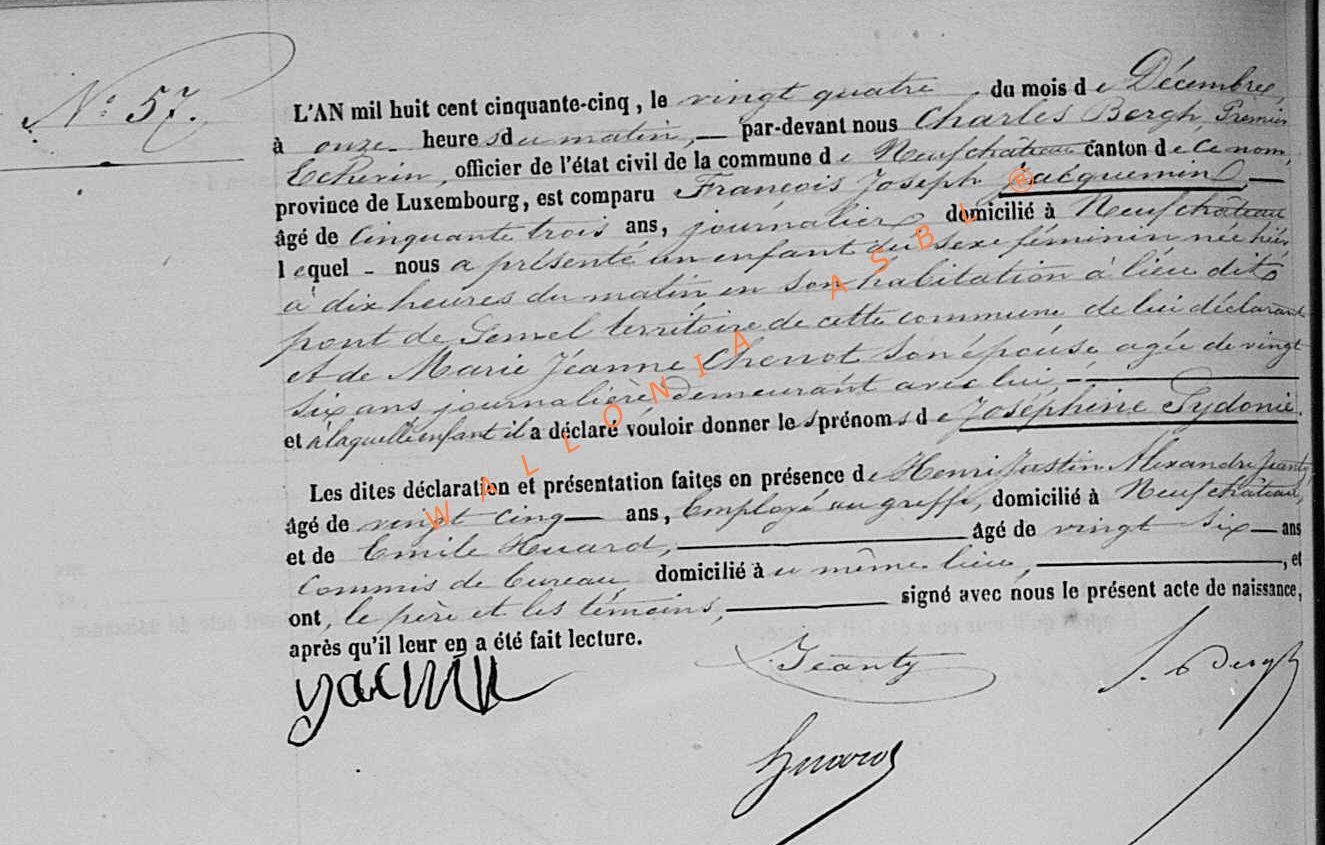 N° 57.
L'AN mil huit cent cinquante-cinq, le vingt quatre du mois de Décembre,
à onze heures du matin, — par-devant nous Charles Bergh, Premier
Echevin, officier de l'état civil de la commune de Neufchâteau canton de ce nom,
province de Luxembourg, est comparu François Joseph Jacquemin, —
âgé de cinquante trois ans, journalier domicilié à Neufchâteau
lequel - nous a présenté un enfant du sexe féminin née hier
à dix heures du matin en son habitation à lieu dit
pont de territoire de cette commune de lui déclarant
et de Marie Jeanne Chenot son épouse agée de vingt
six ans journalière demeurant avec lui, —
et à laquelle enfant il a déclaré vouloir donner les prénoms de Joséphine Sydonie.
Les dites déclaration et présentation faites en présence de Henri Justin Alexandre Jeanty
âgé de vingt cinq — ans, Employé au greffe, domicilié à Neufchâteau,
et de Emile Huard, — âgé de vingt six — ans
commis de bureau domicilié à u même lieu, —, et
ont, le père et les témoins, — signé avec nous le présent acte de naissance,
après qu'il leur en a été fait lecture.
Jeanty
Bergh
Huard
WALLONIA ASBL ®